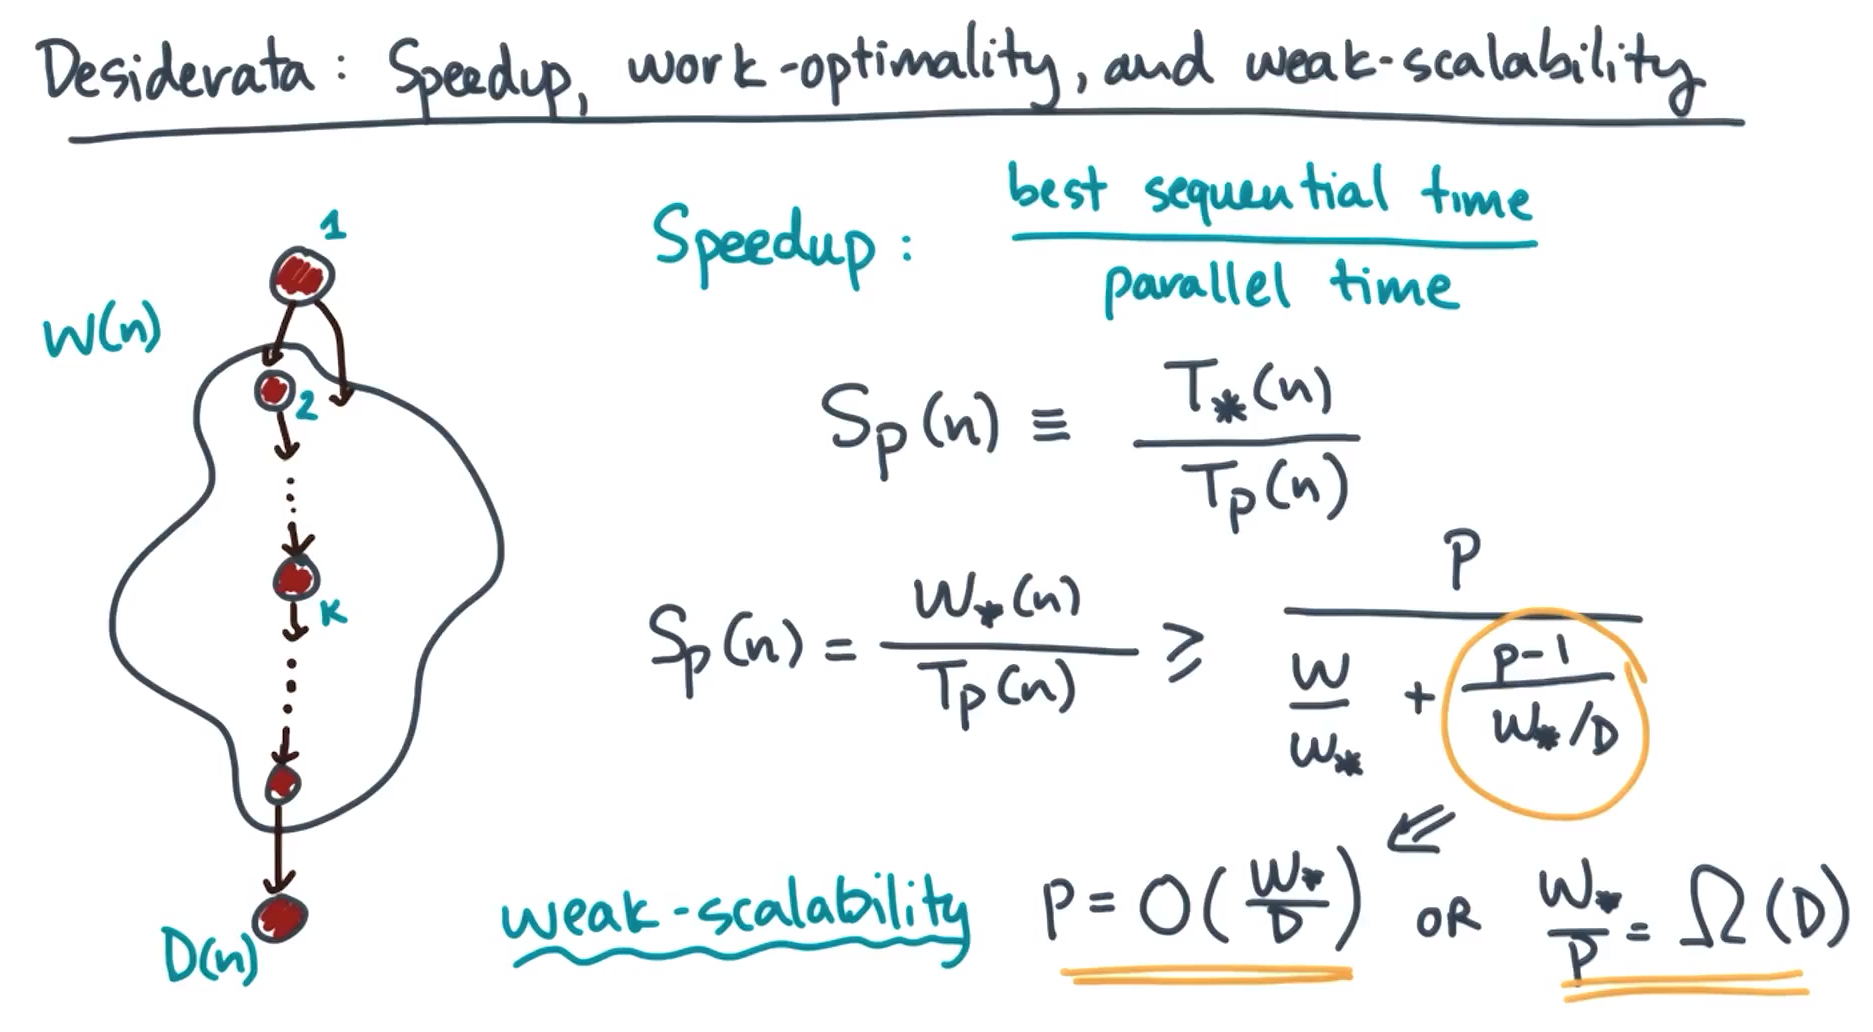 Desiderata: Speedup, work-optimality, and weak-scalability
1
W(n)
2
K
D(n)
Speedup: best sequential time / parallel time
S_p(n) ≡ T_*(n) / T_p(n)
S_p(n) = W_*(n) / T_p(n) ≥ P / (W / W_* + (P-1) / (W_*/D))
⇙
weak-scalability P = O(W_* / D) OR W_* / P = Ω(D)